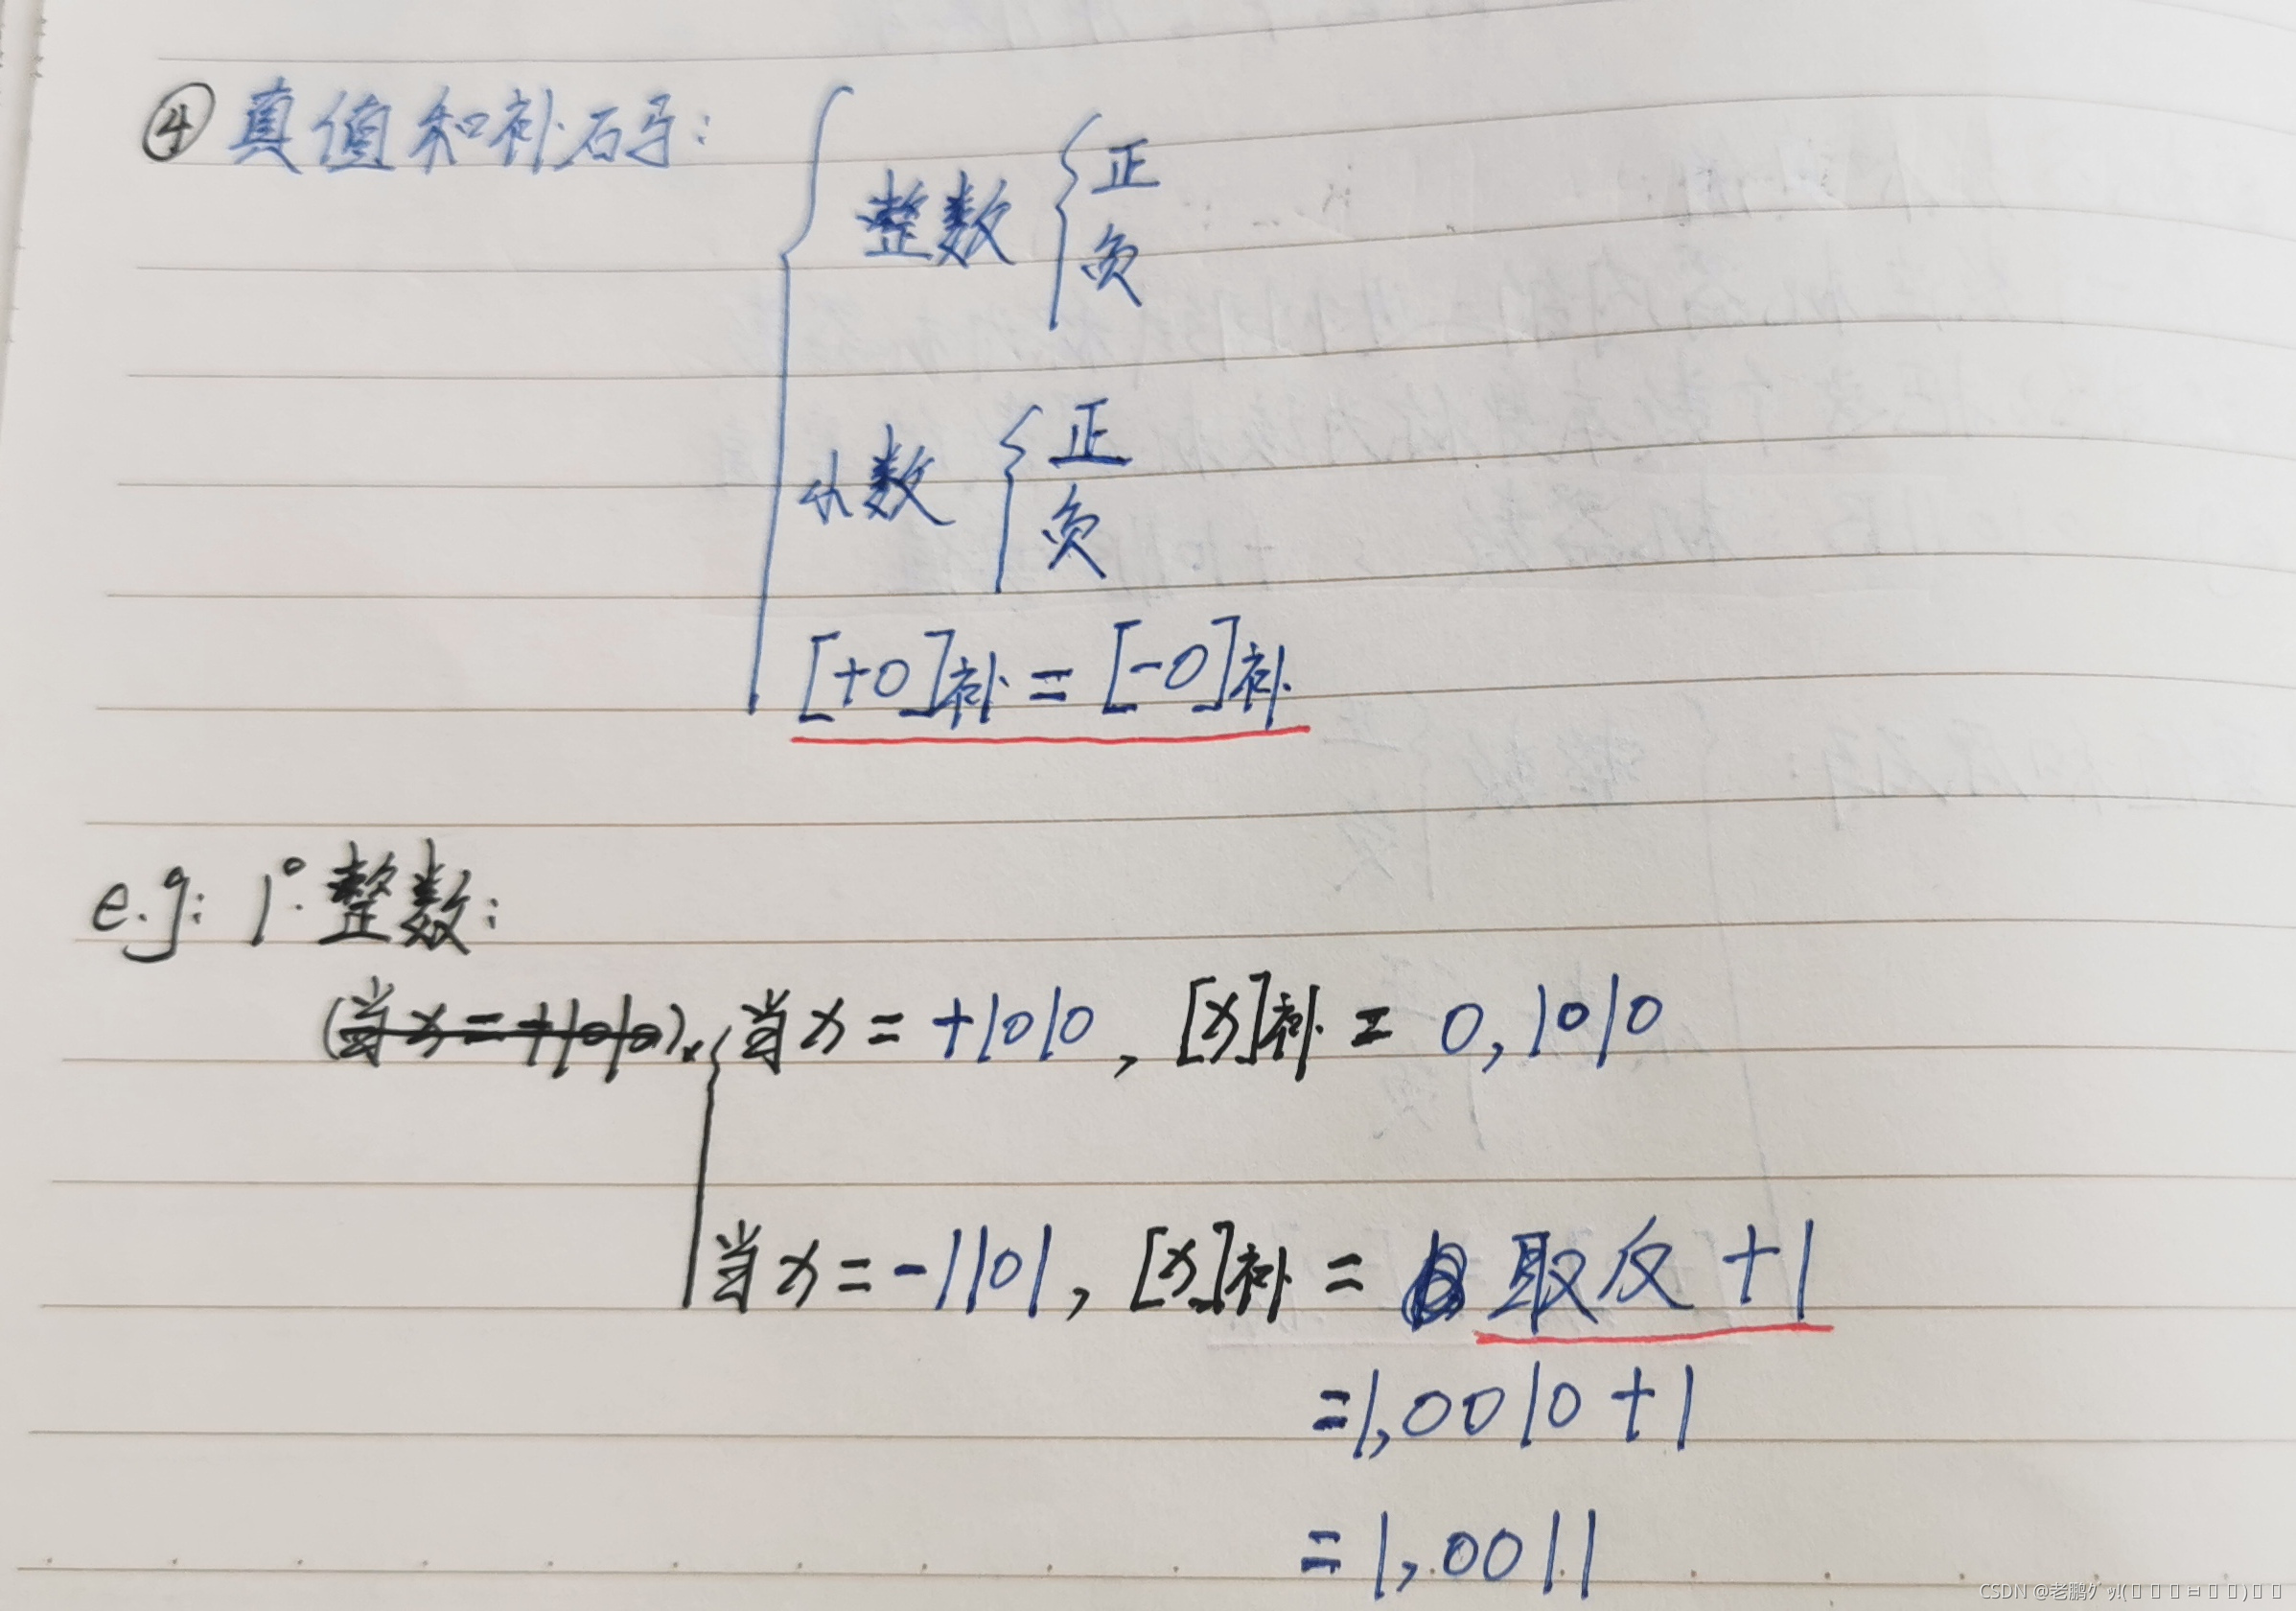 ④真值和补码:
整数 { 正
负
小数 { 正
负
[+0]补 = [-0]补
e.g: 1°. 整数:
(当x=+1010). 当x=+1010, [x]补 = 0,1010
当x=-1101, [x]补 = 取反+1
=1,0010+1
=1,0011
CSDN @老鹏